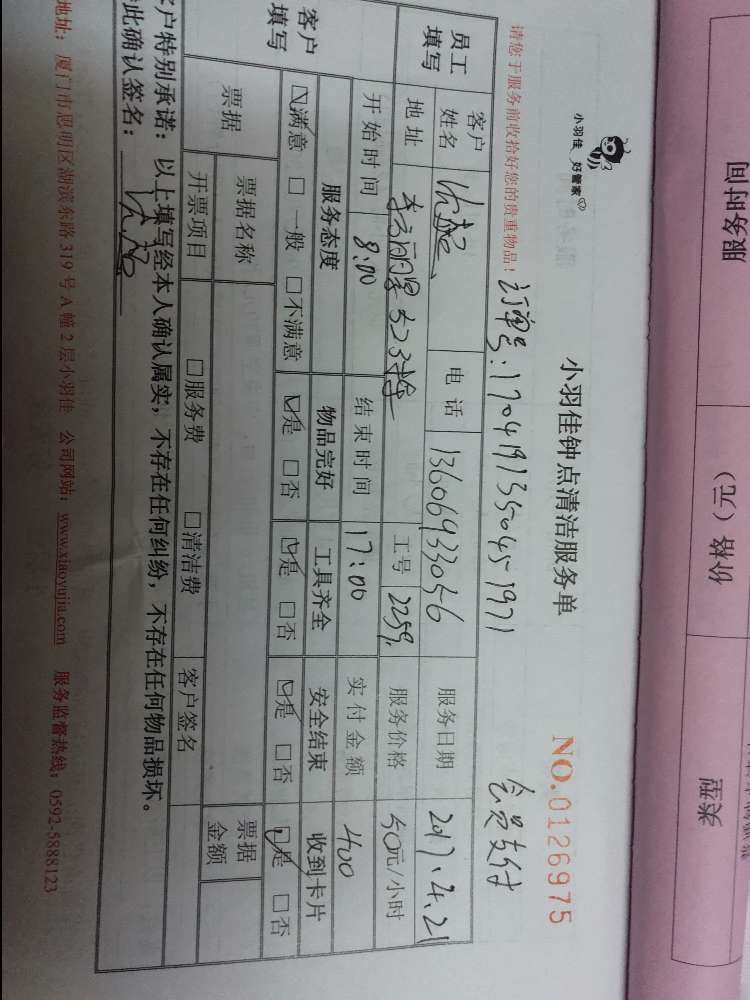 服务时间
价格（元）
小羽佳 好管家
小羽佳钟点清洁服务单
NO.0126975
请您于服务前收拾好您的贵重物品！
订单号:1704191350451971
会员支付
员工填写
客户姓名
电话 13606933056
服务日期 2017.4.21
地址
工号 2259
服务价格 50元/小时
开始时间 8:00
结束时间 17:00
实付金额 400
客户填写
服务态度 物品完好 工具齐全 安全结束 收到卡片
☑满意 □一般 □不满意 ☑是 □否 ☑是 □否 ☑是 □否 ☑是 □否
票据
票据名称
票据金额
开票项目 □服务费 □清洁费
客户签名
客户特别承诺：以上填写经本人确认属实，不存在任何纠纷，不存在任何物品损坏。
此确认签名：
地址：厦门市思明区湖滨东路319号A幢2层小羽佳 公司网站：www.xiaoyujia.com 服务监督热线：0592-5888123